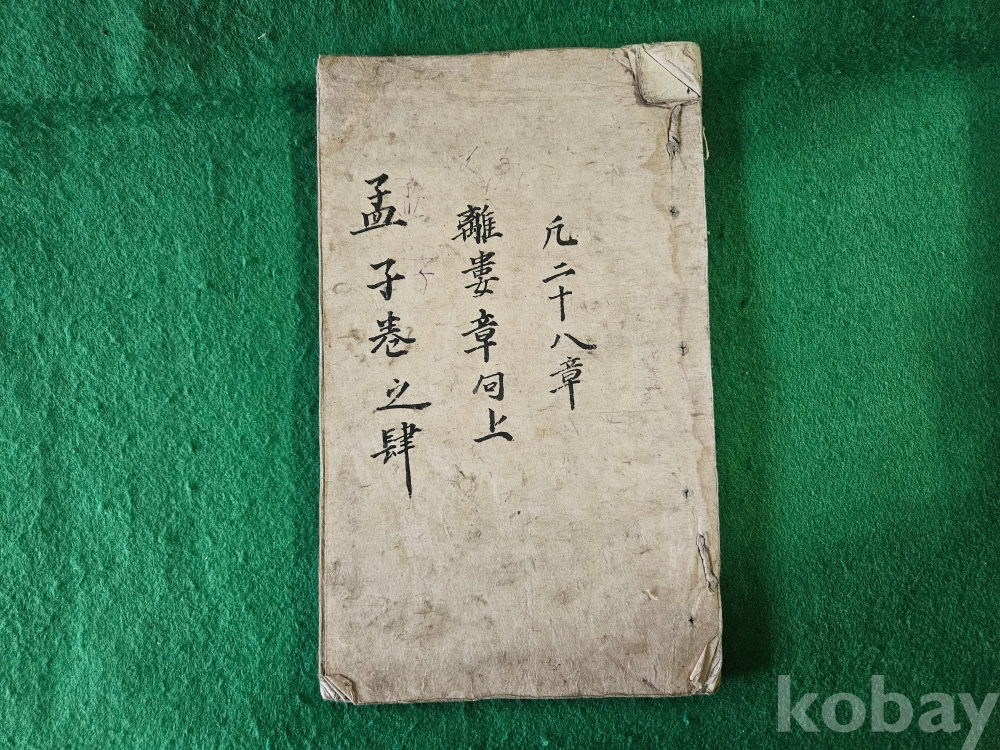 凡二十八章
離婁章句上
孟子卷之肆
kobay